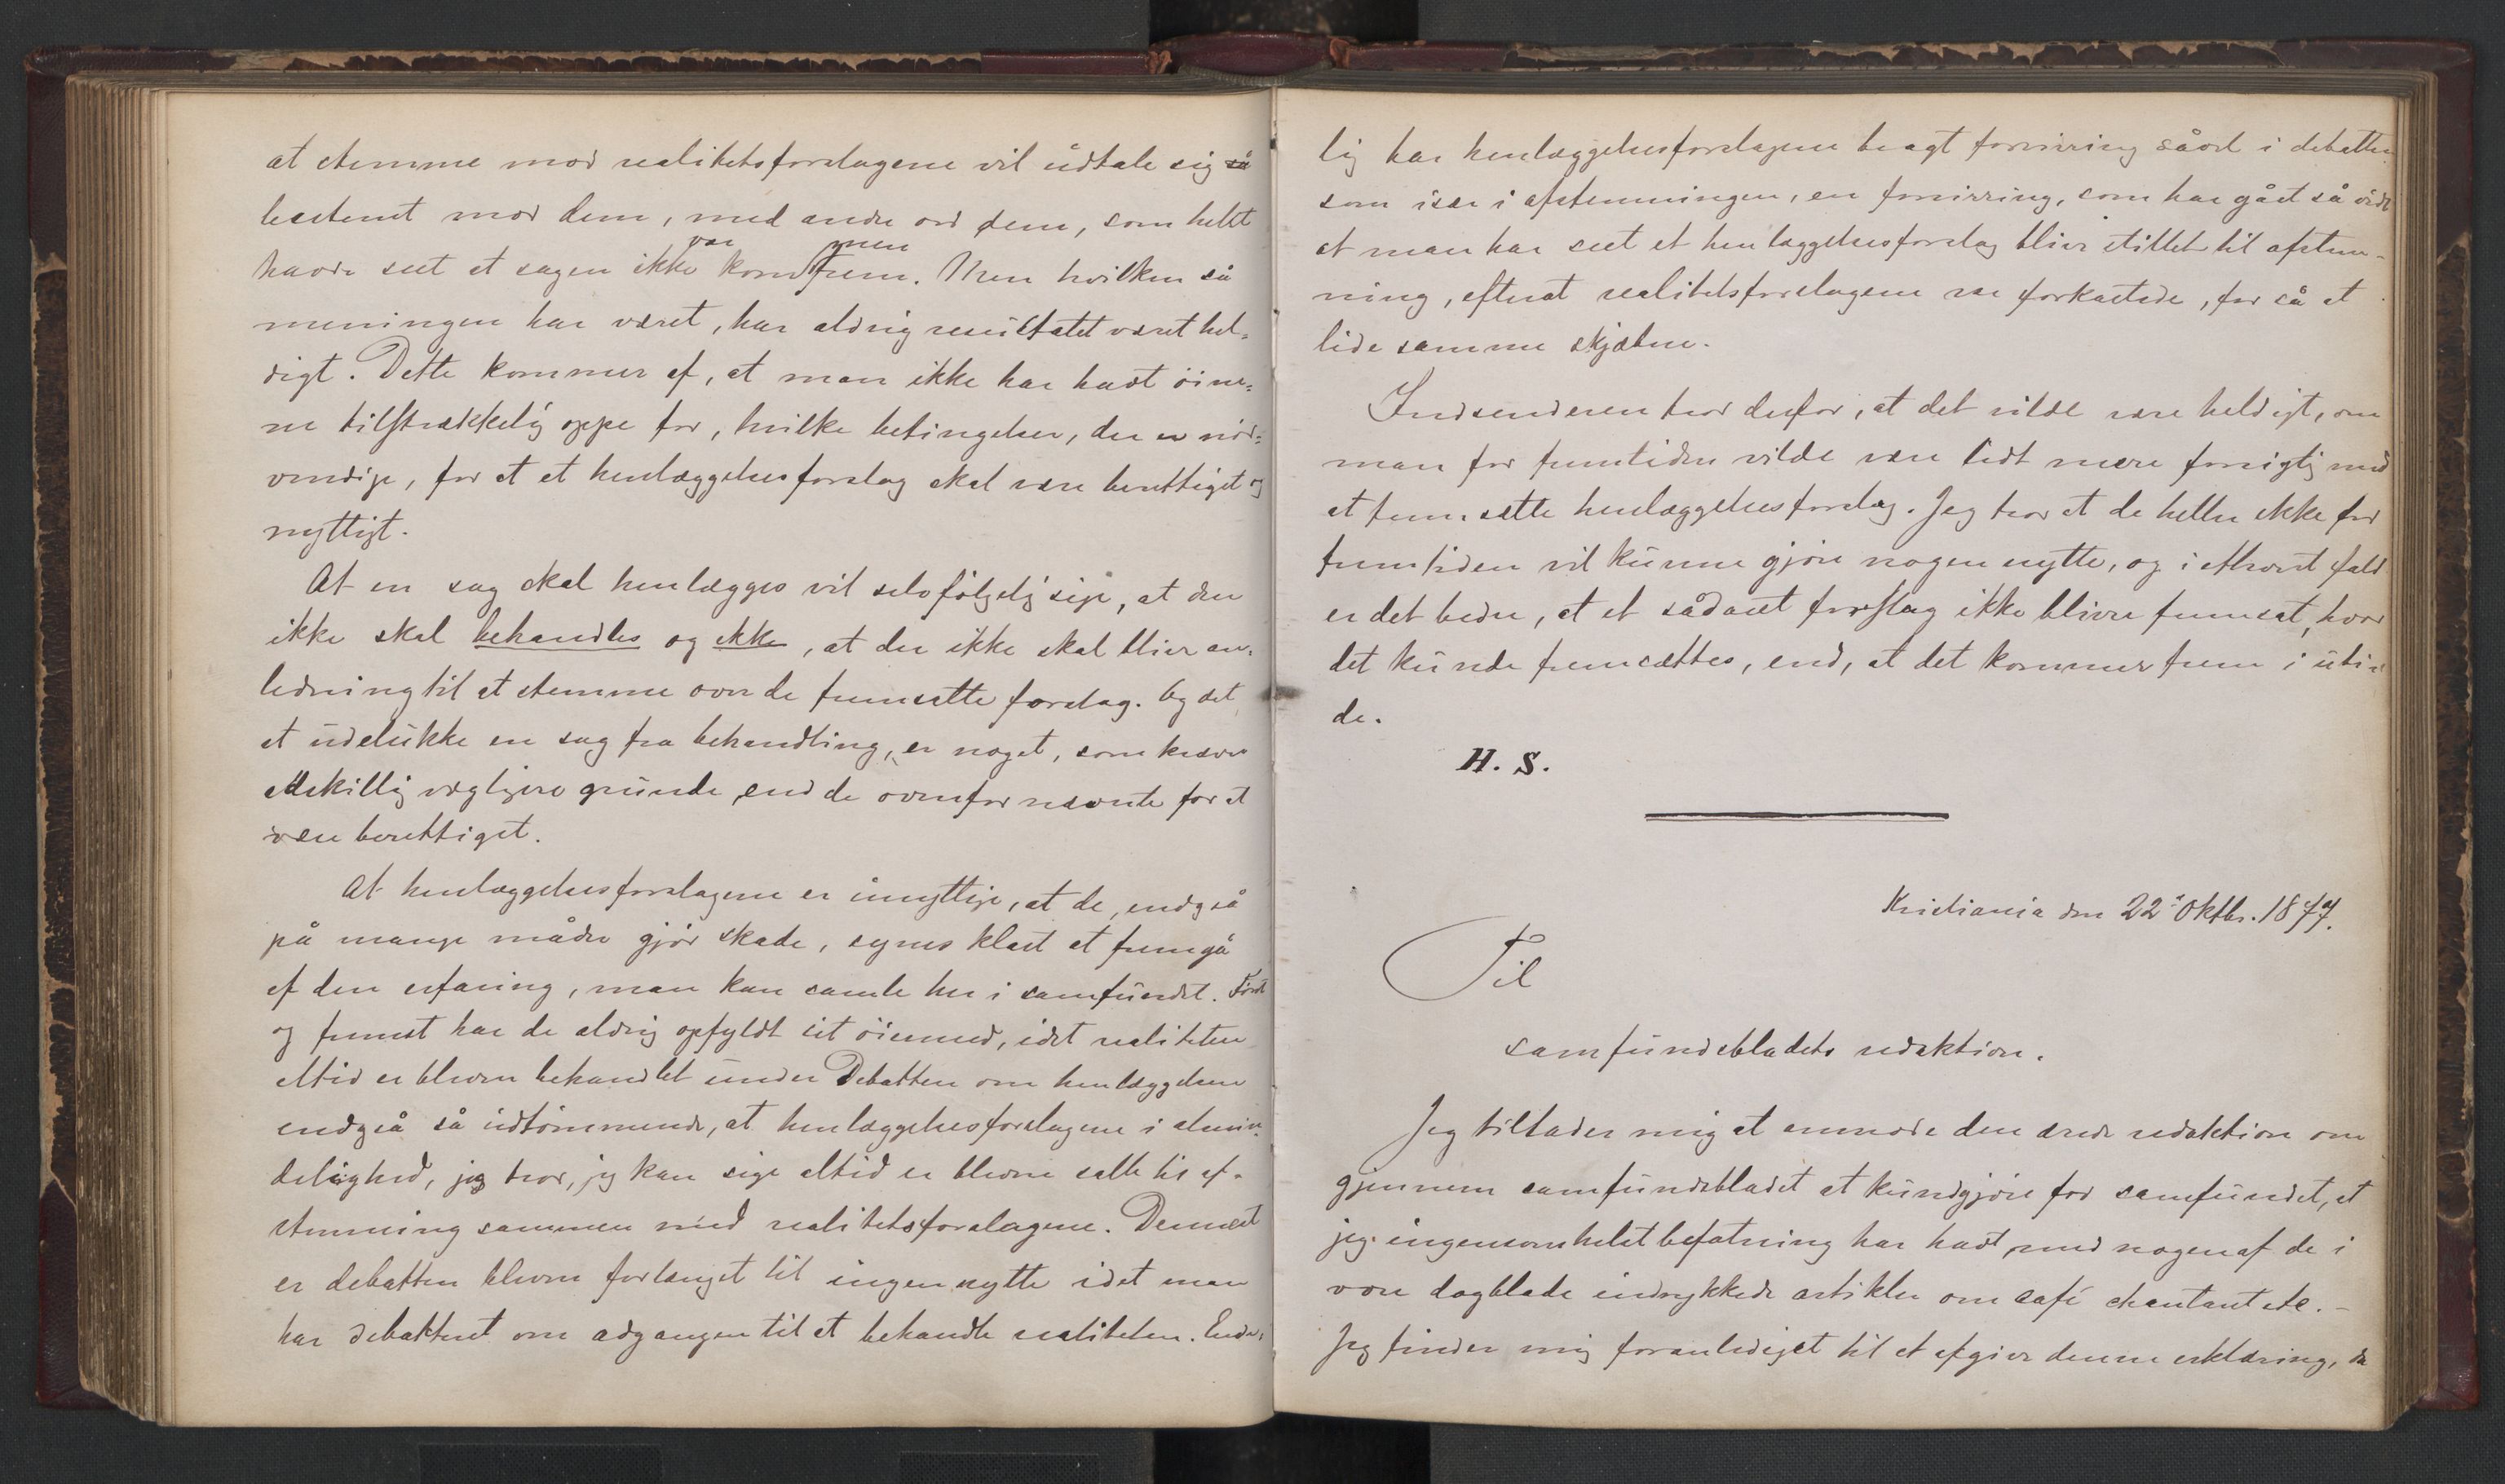 at stemme mod realitetsforslagene vil udtale sig så
bestemt mod dem, med andre ord dem, som helst
havde seet at sagen ikke var kommen frem. Men hvilken så
meningen har været, har aldrig resultatet været hel-
digt. Dette kommer af, at man ikke har havt öine-
ne tilstrækkelig oppe for, hvilke betingelser, der er nöd-
vendige, for at et henlæggelsesforslag skal være berettiget og
nyttigt.
At en sag skal henlægges vil selvfölgelig sige, at den
ikke skal behandles og ikke, at der ikke skal blive an-
ledning til at stemme over de fremsatte forslag. Og det
at udelukke en sag fra behandling, er noget, som kræver
adskillig vægtigere grunde, end de ovenfor nævnte for at
være berettiget.
At henlæggelsesforslagene er unyttige, at de, endogså
på mange måder gjör skade, synes klart at fremgå
af den erfaring, man kan samle her i samfundet. Först
og fremst har de aldrig opfyldt sit öiemed, idet realiteten
altid er bleven behandlet under Debatten om henlæggelsen
endogså så udtömmende, at henlæggelsesforslagene i almin-
delighed, jeg tror, jeg kan sige altid er blevne satte til af-
stemning sammen med realitetsforslagene. Dernæst
er debatten bleven forlænget til ingen nytte idet man
har debatteret om adgangen til at behandle realiteten. Ende-
lig har henlæggelsesforslagene bragt forvirring såvel i debatten
som især i afstemningen, en forvirring, som har gået så vidt
at man har seet et henlæggelsesforslag blive stillet til afstem-
ning, efterat realitetsforslagene var forkastede, for så at
lide samme skjæbne.
Indsenderen tror derfor, at det vilde være heldigt, om
man for fremtiden vilde være lidt mere forsigtig med
at fremsætte henlæggelsesforslag. Jeg tror at de heller ikke for
fremtiden vil kunne gjöre nogen nytte, og i ethvert fald
er det bedre, at et sådant forslag ikke bliver fremsat, hvor
det kunde fremsættes, end, at det kommer frem i uti-
de.
H. S.
Kristiania den 22de Oktbr. 1877.
Til
samfundsbladets redaktion.
Jeg tillader mig at anmode den ærede redaktion om
gjennem samfundsbladet at kundgjöre for samfundet, at
jeg ingensomhelst befatning har havt med nogen af de i
vore dagblade indrykkede artikler om café chantant etc. -
Jeg finder mig foranlediget til at afgive denne erklæring, da